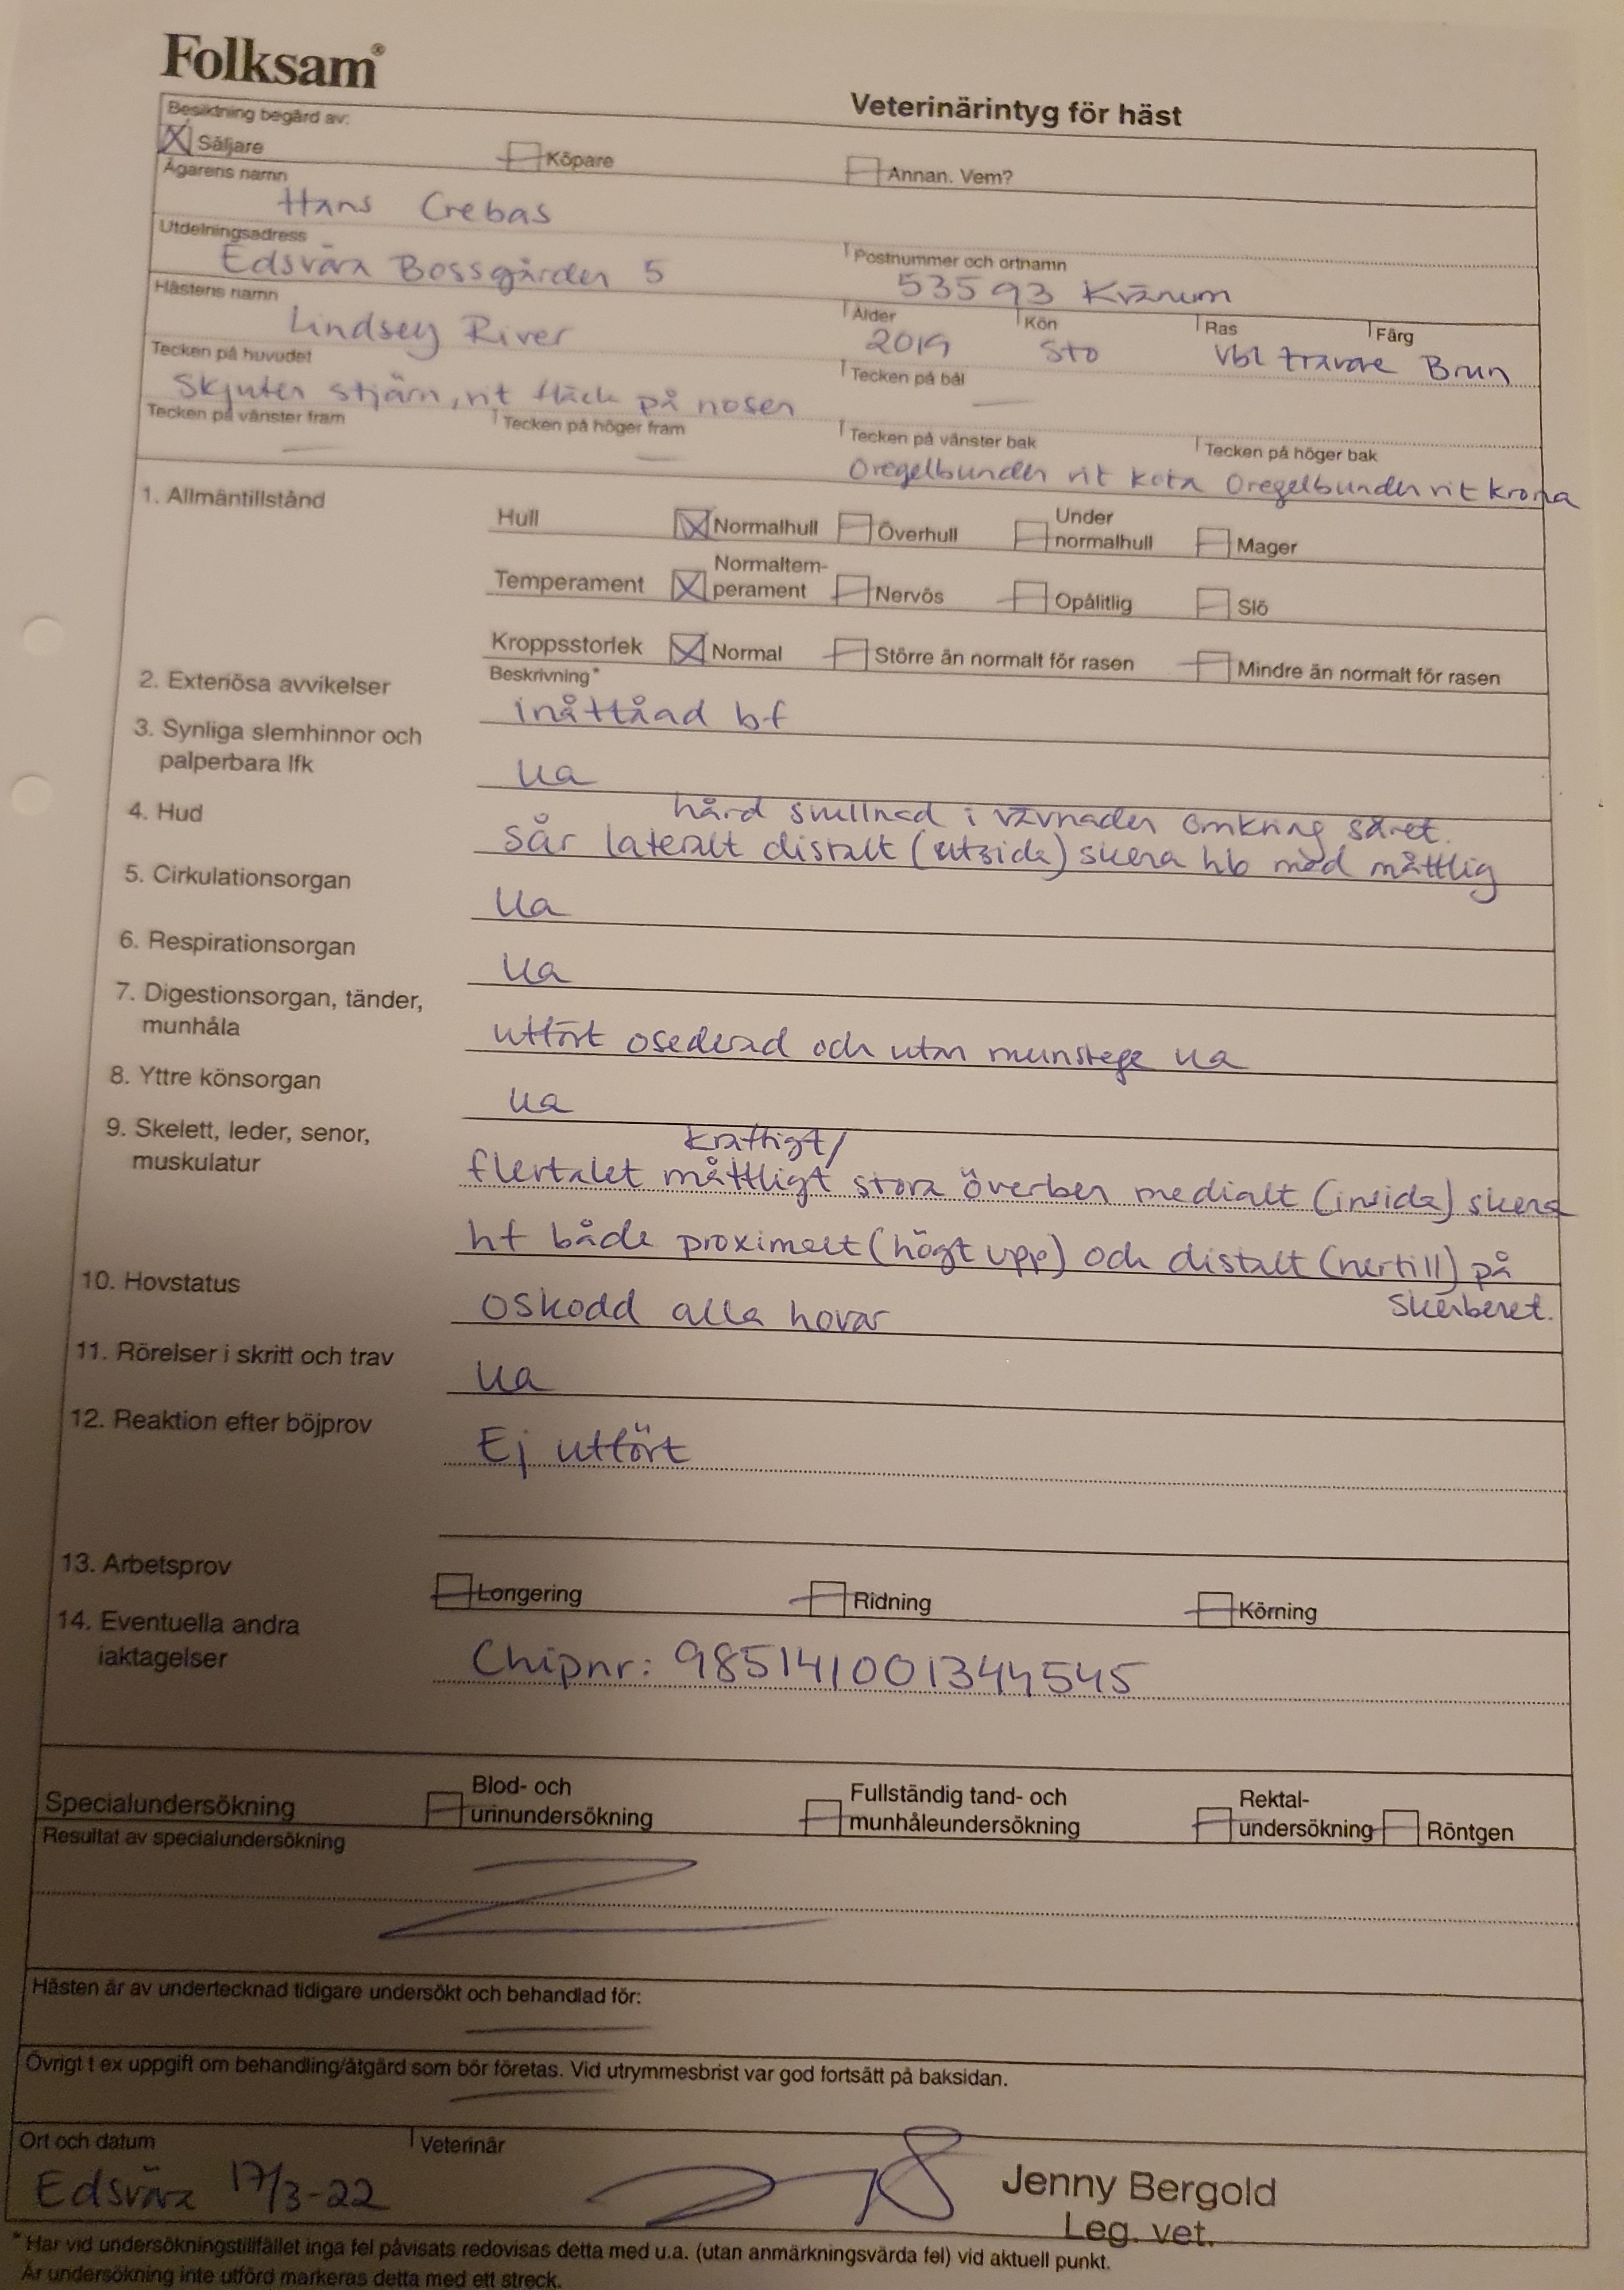 Folksam®
Veterinärintyg för häst
Besiktning begärd av:
Säljare Köpare Annan. Vem?
Ägarens namn
Hans Crebas
Utdelningsadress Postnummer och ortnamn
Edsvära Bossgården 5 53593 Kvänum
Hästens namn Ålder Kön Ras Färg
Lindsey River 2019 Sto Vbl travare Brun
Tecken på huvudet Tecken på bål
Skjuten stjärn, vit fläck på nosen —
Tecken på vänster fram Tecken på höger fram Tecken på vänster bak Tecken på höger bak
— — Oregelbunden vit kota Oregelbunden vit krona
1. Allmäntillstånd
Hull Normalhull Överhull Under normalhull Mager
Temperament Normaltem-
perament Nervös Opålitlig Slö
Kroppsstorlek Normal Större än normalt för rasen Mindre än normalt för rasen
2. Exteriösa avvikelser Beskrivning*
inåttåad bf
3. Synliga slemhinnor och
palperbara lfk ua
4. Hud hård svullnad i vävnaden omkring såret.
Sår lateralt distalt (utsida) skena hb med måttlig
5. Cirkulationsorgan
ua
6. Respirationsorgan
ua
7. Digestionsorgan, tänder,
munhåla
utfört osederad och utan munstege ua
8. Yttre könsorgan
ua
9. Skelett, leder, senor,
muskulatur
kraftigt/
flertalet måttligt stora överben medialt (insida) skena
hf både proximalt (högt upp) och distalt (nertill) på
skenbenet.
10. Hovstatus
oskodd alla hovar
11. Rörelser i skritt och trav
ua
12. Reaktion efter böjprov
Ej utfört
13. Arbetsprov
Longering Ridning Körning
14. Eventuella andra
iaktagelser
Chipnr: 985141001344545
Specialundersökning Blod- och
urinundersökning Fullständig tand- och
munhåleundersökning Rektal-
undersökning Röntgen
Resultat av specialundersökning
Hästen är av undertecknad tidigare undersökt och behandlad för:
—
Övrigt t ex uppgift om behandling/åtgärd som bör företas. Vid utrymmesbrist var god fortsätt på baksidan.
—
Ort och datum Veterinär
Edsvära 17/3-22
Jenny Bergold
Leg. vet.
* Har vid undersökningstillfället inga fel påvisats redovisas detta med u.a. (utan anmärkningsvärda fel) vid aktuell punkt.
Är undersökning inte utförd markeras detta med ett streck.